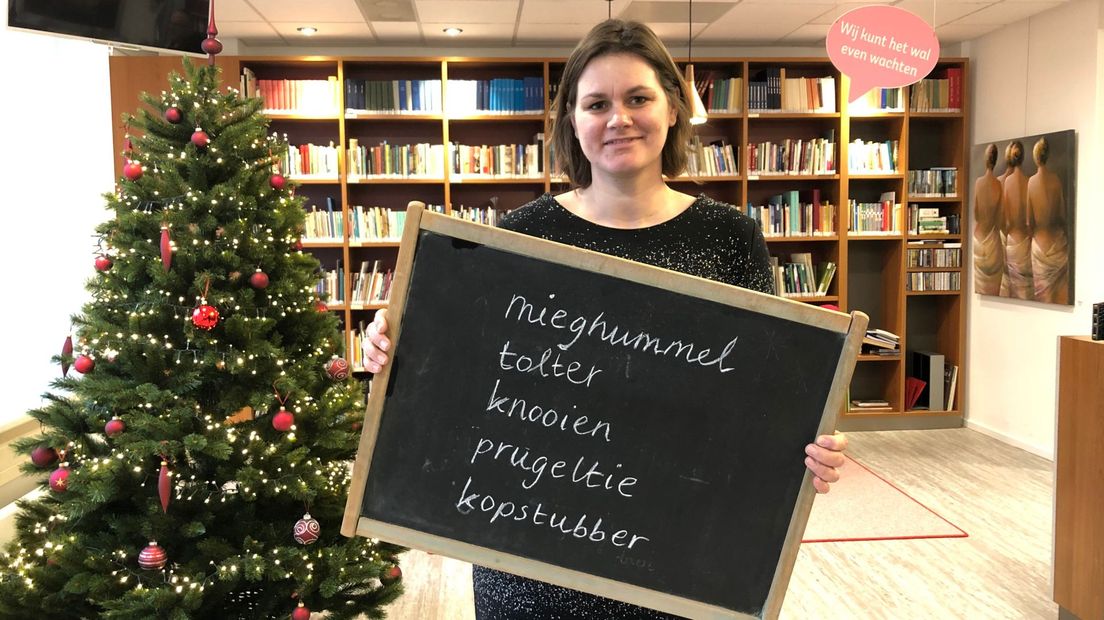 Wij kunt het wal
even wachten
mieghummel
tolter
knooien
prugeltie
kopstubber